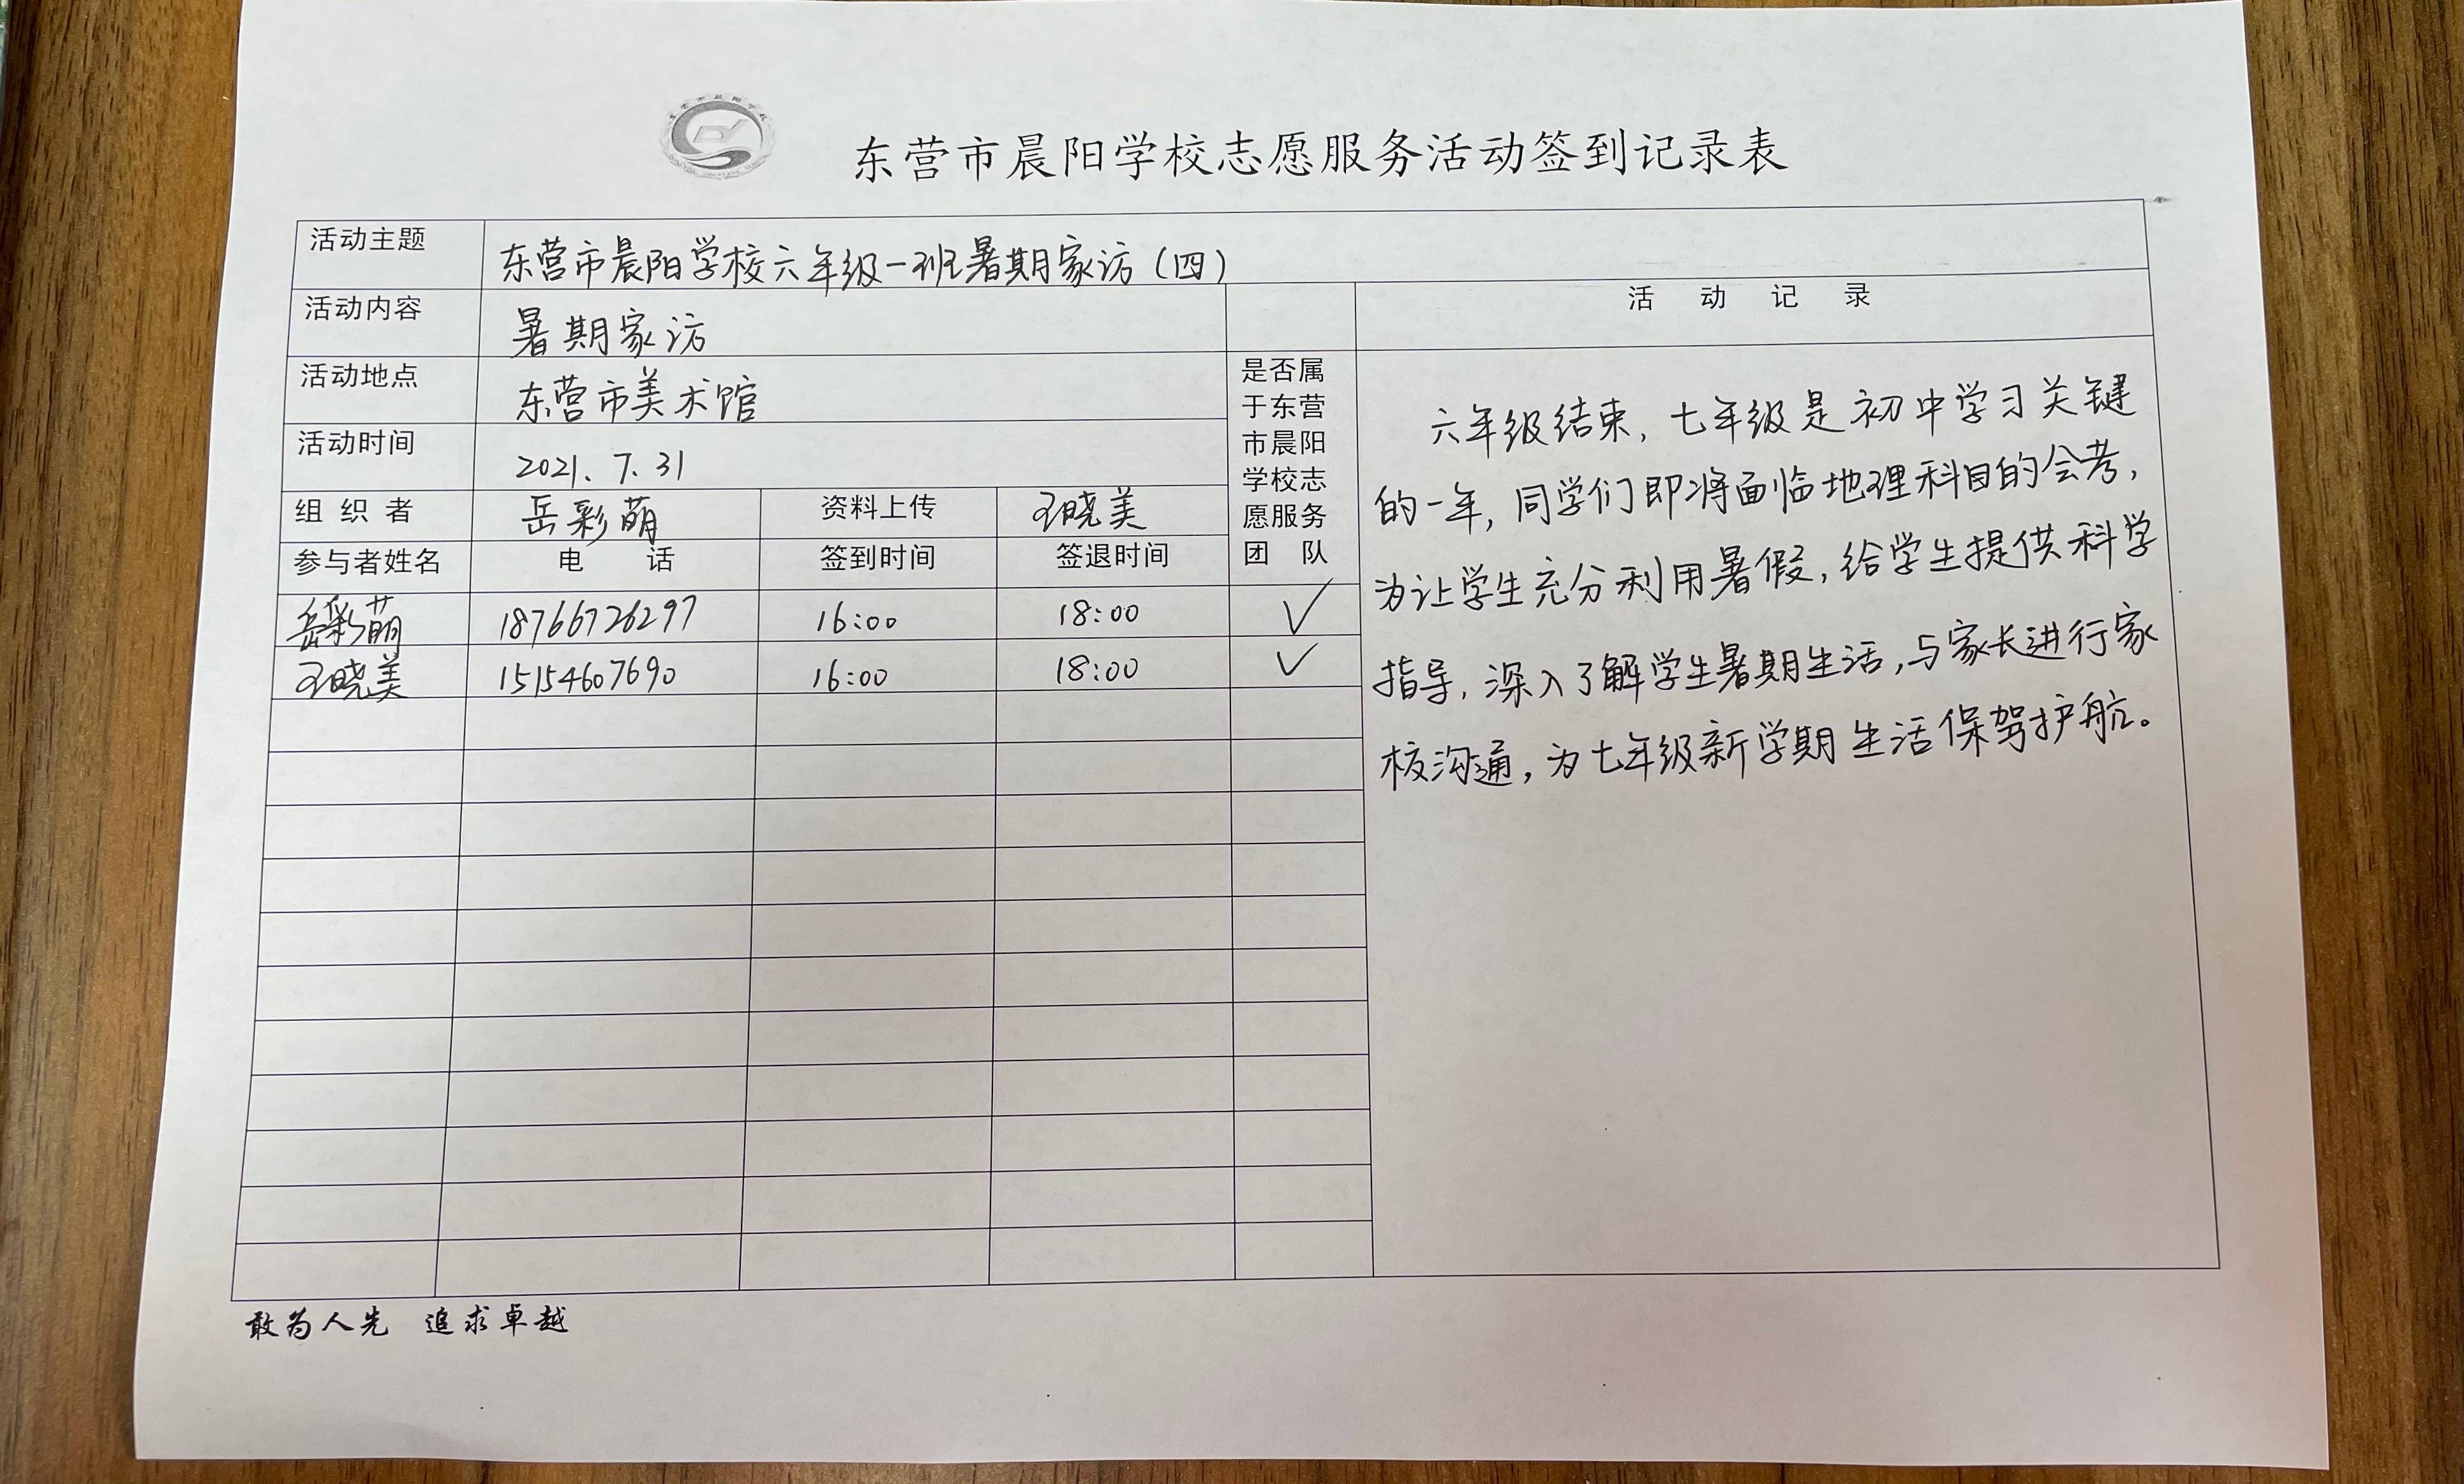 东营市晨阳学校志愿服务活动签到记录表
活动主题 东营市晨阳学校六年级一班暑期家访（四）
活动内容 暑期家访
活动地点 东营市美术馆
活动时间 2021.7.31
组织者 岳彩萌 资料上传 王晓美
参与者姓名 电话 签到时间 签退时间
是否属
于东营
市晨阳
学校志
愿服务
团队
岳彩萌 18766726297 16:00 18:00 ✓
王晓美 15154607690 16:00 18:00 ✓
活动记录
六年级结束，七年级是初中学习关键
的一年，同学们即将面临地理科目的会考，
为让学生充分利用暑假，给学生提供科学
指导，深入了解学生暑期生活，与家长进行家
校沟通，为七年级新学期生活保驾护航。
敢为人先 追求卓越